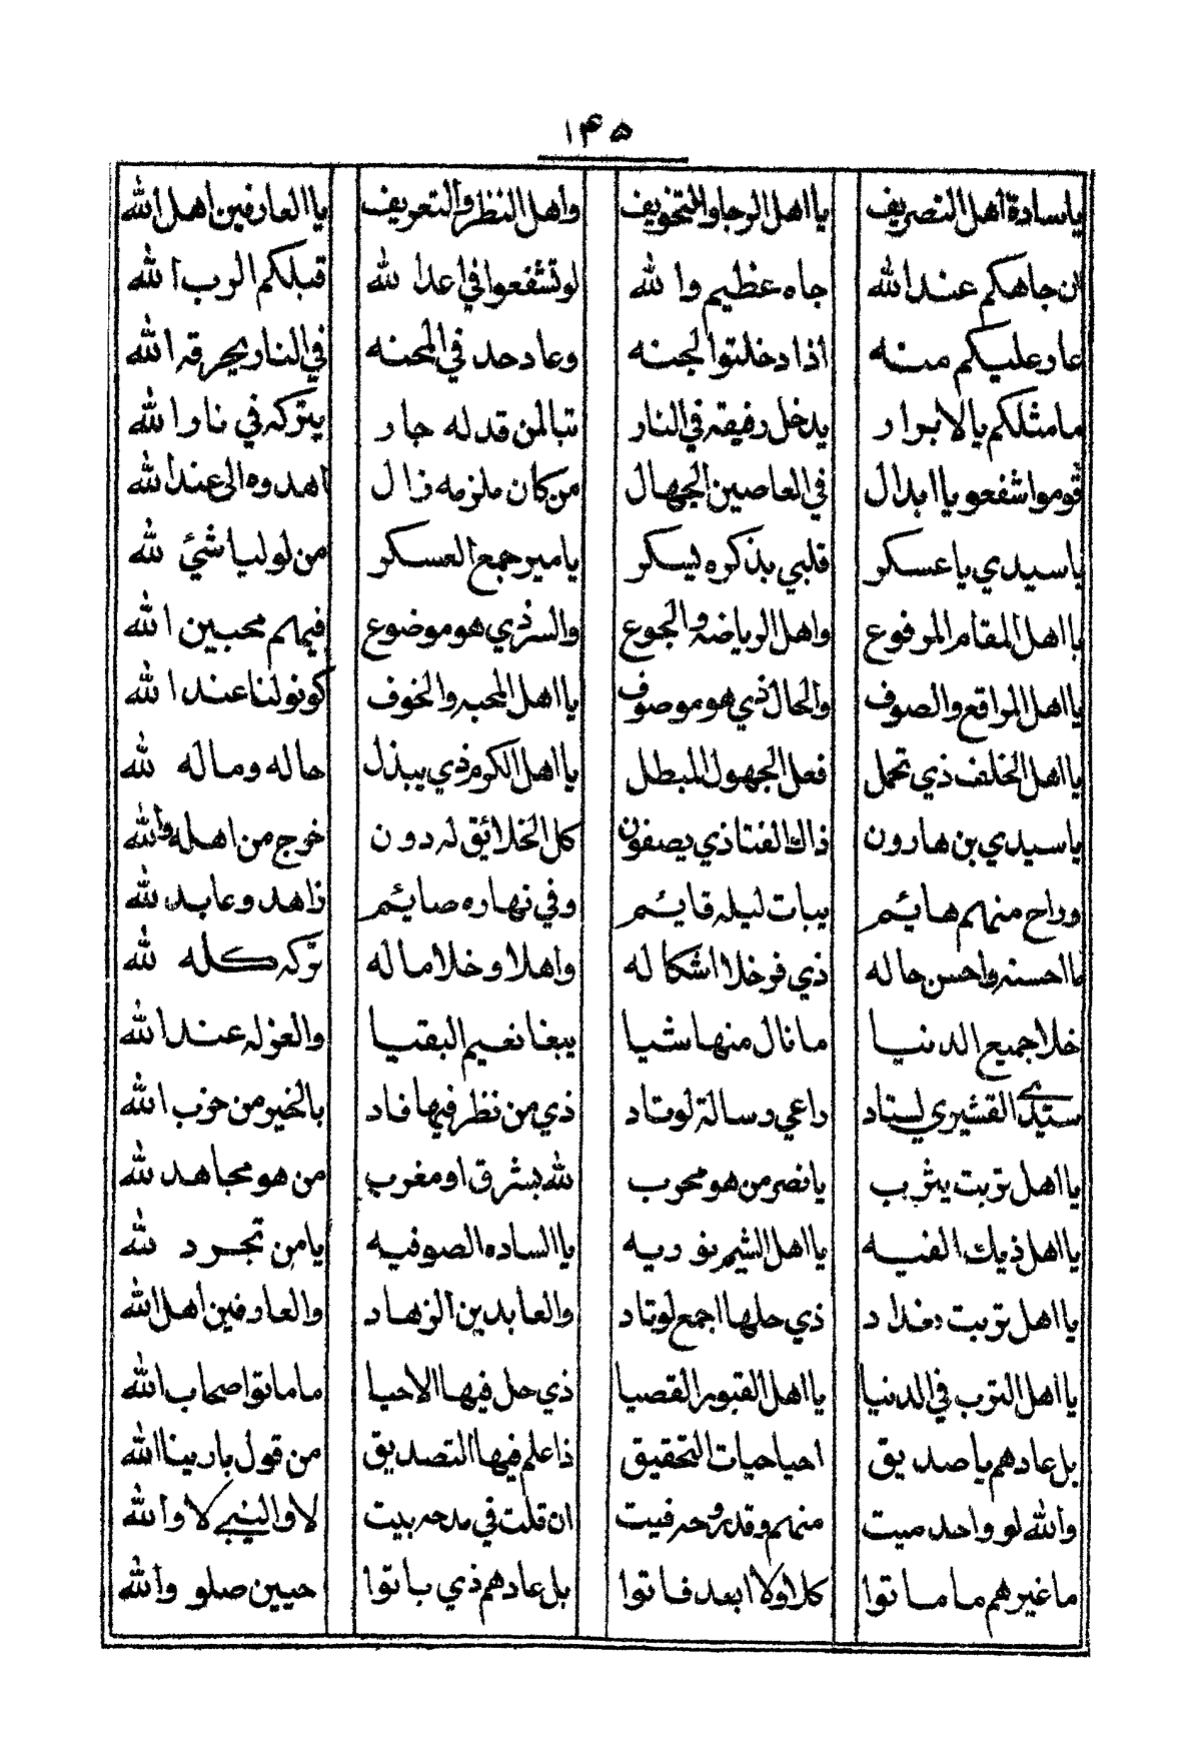 ١٤٥
ياسادة اهل التصريف يااهل الرجا والتخويف واهل النظر والتعريف ياالعارفين اهل الله
ان جاهكم عند الله جاه عظيم والله لو تشفعوا في اعدا لله قبلكم الرب الله
عار عليكم منه اذا دخلتوا الجنه وعاد حد في المحنه في النار يحرقه الله
مامثلكم يالابرار يدخل رفيقه في النار تبا لمن قد له جار يتركه في نار الله
قوموا شفعو ياابدال في العاصين الجهال من كان ملزمه زال اهدوه الى عند الله
ياسيدي ياعسكر قلبي بذكره يسكر يامير جمع العسكر من لوليا شئ لله
يااهل المقام المرفوع واهل الرياضه والجوع والسر ذي هو موضوع فيهم محبين الله
يااهل المراقع والصوف والحال ذي هو موصوف يااهل المحبه والخوف كونو لنا عند الله
يااهل الخلف ذي تحمل فعل الجهول المبطل يااهل الكرم ذي يبذل حاله وماله لله
ياسيدي بن هارون ذاك الفتا ذي يصفون كل الخلائق له دون خرج من اهله والله
وراح منهم هائم يبات ليله قايئم وفي نهاره صايئم زاهد وعابد لله
مااحسنه واحسن حاله ذي فر خلا اشكاله واهلا وخلا ماله تركه كله لله
خلا جميع الدنيا مانال منها شيا يبغا نعيم البقيا والعزله عند الله
سيدي القشيري لستاد راعي رسالة لوتاد ذي من نظر فيها فاد بالخير من حزب الله
يااهل تربت يثرب يانصر من هو محرب لله بشرق او مغرب من هو مجاهد لله
يااهل ذيك الفيه يااهل الشيم نوريه ياالساده الصوفيه يامن تجرد لله
يااهل تربت بغداد ذي حلها اجمع لوتاد والعابدين الزهاد والعارفين اهل الله
يااهل الترب في الدنيا يااهل القبور القصيا ذي حل فيها الاحيا ماماتوا اصحاب الله
بل عادهم ياصديق احيا حيات التحقيق ذا علم فيها التصديق من قول بارينا الله
والله لو واحد ميت منهم وقد روحه فيت ان قلت في مدحه بيت لا والنبي لا والله
ماغيرهم ماماتوا كل اولا ابعد فاتوا بل عادهم ذي باتوا حيين صلو والله